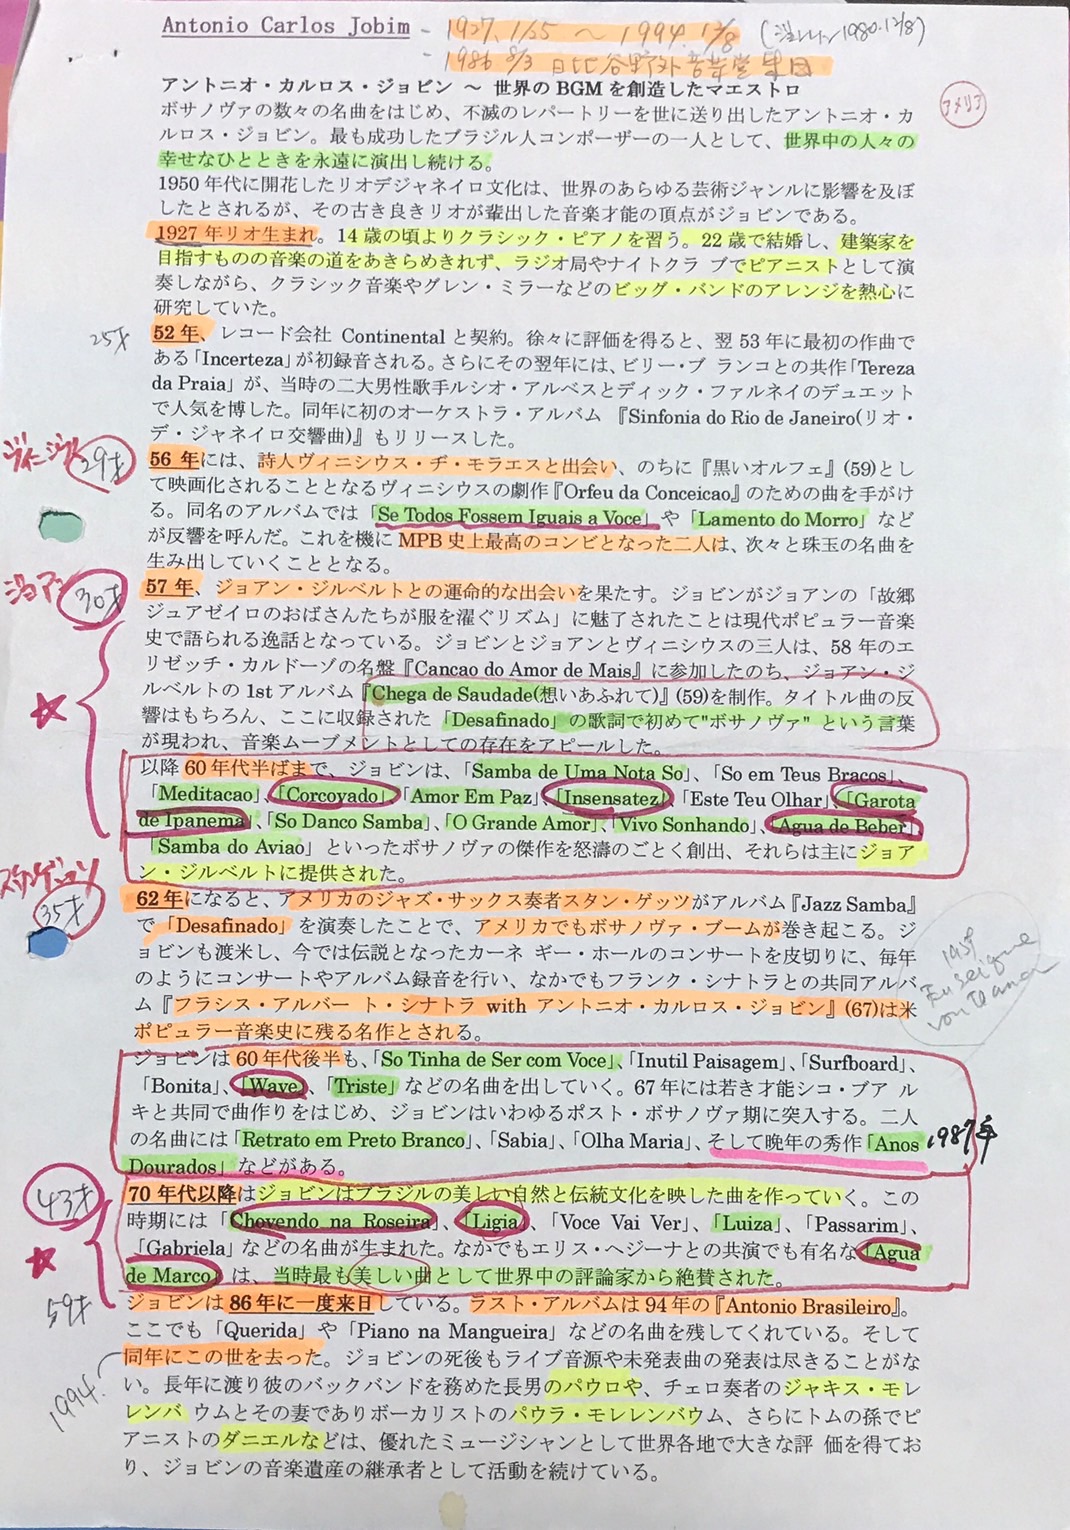 Antonio Carlos Jobim - 1927. 1/25 ~ 1994. 12/8 (ジョンレノン 1980.12/8)
- 1986 8/3 日比谷野外音楽堂来日
アメリア
アントニオ・カルロス・ジョビン ～ 世界のBGMを創造したマエストロ
ボサノヴァの数々の名曲をはじめ、不滅のレパートリーを世に送り出したアントニオ・カ
ルロス・ジョビン。最も成功したブラジル人コンポーザーの一人として、世界中の人々の
幸せなひとときを永遠に演出し続ける。
1950 年代に開花したリオデジャネイロ文化は、世界のあらゆる芸術ジャンルに影響を及ぼ
したとされるが、その古き良きリオが輩出した音楽才能の頂点がジョビンである。
1927 年リオ生まれ。14 歳の頃よりクラシック・ピアノを習う。22 歳で結婚し、建築家を
目指すものの音楽の道をあきらめきれず、ラジオ局やナイトクラ ブでピアニストとして演
奏しながら、クラシック音楽やグレン・ミラーなどのビッグ・バンドのアレンジを熱心に
研究していた。
25才
52 年、レコード会社 Continental と契約。徐々に評価を得ると、翌 53 年に最初の作曲で
ある「Incerteza」が初録音される。さらにその翌年には、ビリー・ブ ランコとの共作「Tereza
da Praia」が、当時の二大男性歌手ルシオ・アルベスとディック・ファルネイのデュエット
で人気を博した。同年に初のオーケストラ・アルバム 『Sinfonia do Rio de Janeiro(リオ・
デ・ジャネイロ交響曲)』もリリースした。
29才
56 年には、詩人ヴィニシウス・ヂ・モラエスと出会い、のちに『黒いオルフェ』(59)とし
て映画化されることとなるヴィニシウスの劇作『Orfeu da Conceicao』のための曲を手がけ
る。同名のアルバムでは「Se Todos Fossem Iguais a Voce」や「Lamento do Morro」など
が反響を呼んだ。これを機に MPB 史上最高のコンビとなった二人は、次々と珠玉の名曲を
生み出していくこととなる。
ジョアン 30才
57 年、ジョアン・ジルベルトとの運命的な出会いを果たす。ジョビンがジョアンの「故郷
ジュアゼイロのおばさんたちが服を濯ぐリズム」に魅了されたことは現代ポピュラー音楽
史で語られる逸話となっている。ジョビンとジョアンとヴィニシウスの三人は、58 年のエ
リゼッチ・カルドーゾの名盤『Cancao do Amor de Mais』に参加したのち、ジョアン・ジ
ルベルトの 1st アルバム『Chega de Saudade(想いあふれて)』(59)を制作。タイトル曲の反
響はもちろん、ここに収録された「Desafinado」の歌詞で初めて"ボサノヴァ" という言葉
が現われ、音楽ムーブメントとしての存在をアピールした。
以降 60 年代半ばまで、ジョビンは、「Samba de Uma Nota So」、「So em Teus Bracos」、
「Meditacao」、「Corcovado」、「Amor Em Paz」、「Insensatez」、「Este Teu Olhar」、「Garota
de Ipanema」、「So Danco Samba」、「O Grande Amor」、「Vivo Sonhando」、「Agua de Beber」、
「Samba do Aviao」といったボサノヴァの傑作を怒濤のごとく創出、それらは主にジョア
ン・ジルベルトに提供された。
スタンゲッツ 35才
62 年になると、アメリカのジャズ・サックス奏者スタン・ゲッツがアルバム『Jazz Samba』
で「Desafinado」を演奏したことで、アメリカでもボサノヴァ・ブームが巻き起こる。ジ
ョビンも渡米し、今では伝説となったカーネ ギー・ホールのコンサートを皮切りに、毎年
のようにコンサートやアルバム録音を行い、なかでもフランク・シナトラとの共同アルバ
ム『フラシス・アルバー ト・シナトラ with アントニオ・カルロス・ジョビン』(67)は米
ポピュラー音楽史に残る名作とされる。
1959
Eu sei que
vou te amar
ジョビンは 60 年代後半も、「So Tinha de Ser com Voce」、「Inutil Paisagem」、「Surfboard」、
「Bonita」、「Wave」、「Triste」などの名曲を出していく。67 年には若き才能シコ・ブア ル
キと共同で曲作りをはじめ、ジョビンはいわゆるポスト・ボサノヴァ期に突入する。二人
の名曲には「Retrato em Preto Branco」、「Sabia」、「Olha Maria」、そして晩年の秀作「Anos
Dourados」などがある。
1987年
43才
70 年代以降はジョビンはブラジルの美しい自然と伝統文化を映した曲を作っていく。この
時期には「Chovendo na Roseira」、「Ligia」、「Voce Vai Ver」、「Luiza」、「Passarim」、
「Gabriela」などの名曲が生まれた。なかでもエリス・ヘジーナとの共演でも有名な「Agua
de Marco」は、当時最も美しい曲として世界中の評論家から絶賛された。
59才
ジョビンは 86 年に一度来日している。ラスト・アルバムは 94 年の『Antonio Brasileiro』。
ここでも「Querida」や「Piano na Mangueira」などの名曲を残してくれている。そして
同年にこの世を去った。ジョビンの死後もライブ音源や未発表曲の発表は尽きることがな
1994.
い。長年に渡り彼のバックバンドを務めた長男のパウロや、チェロ奏者のジャキス・モレ
レンバ ウムとその妻でありボーカリストのパウラ・モレレンバウム、さらにトムの孫でピ
アニストのダニエルなどは、優れたミュージシャンとして世界各地で大きな評 価を得てお
り、ジョビンの音楽遺産の継承者として活動を続けている。